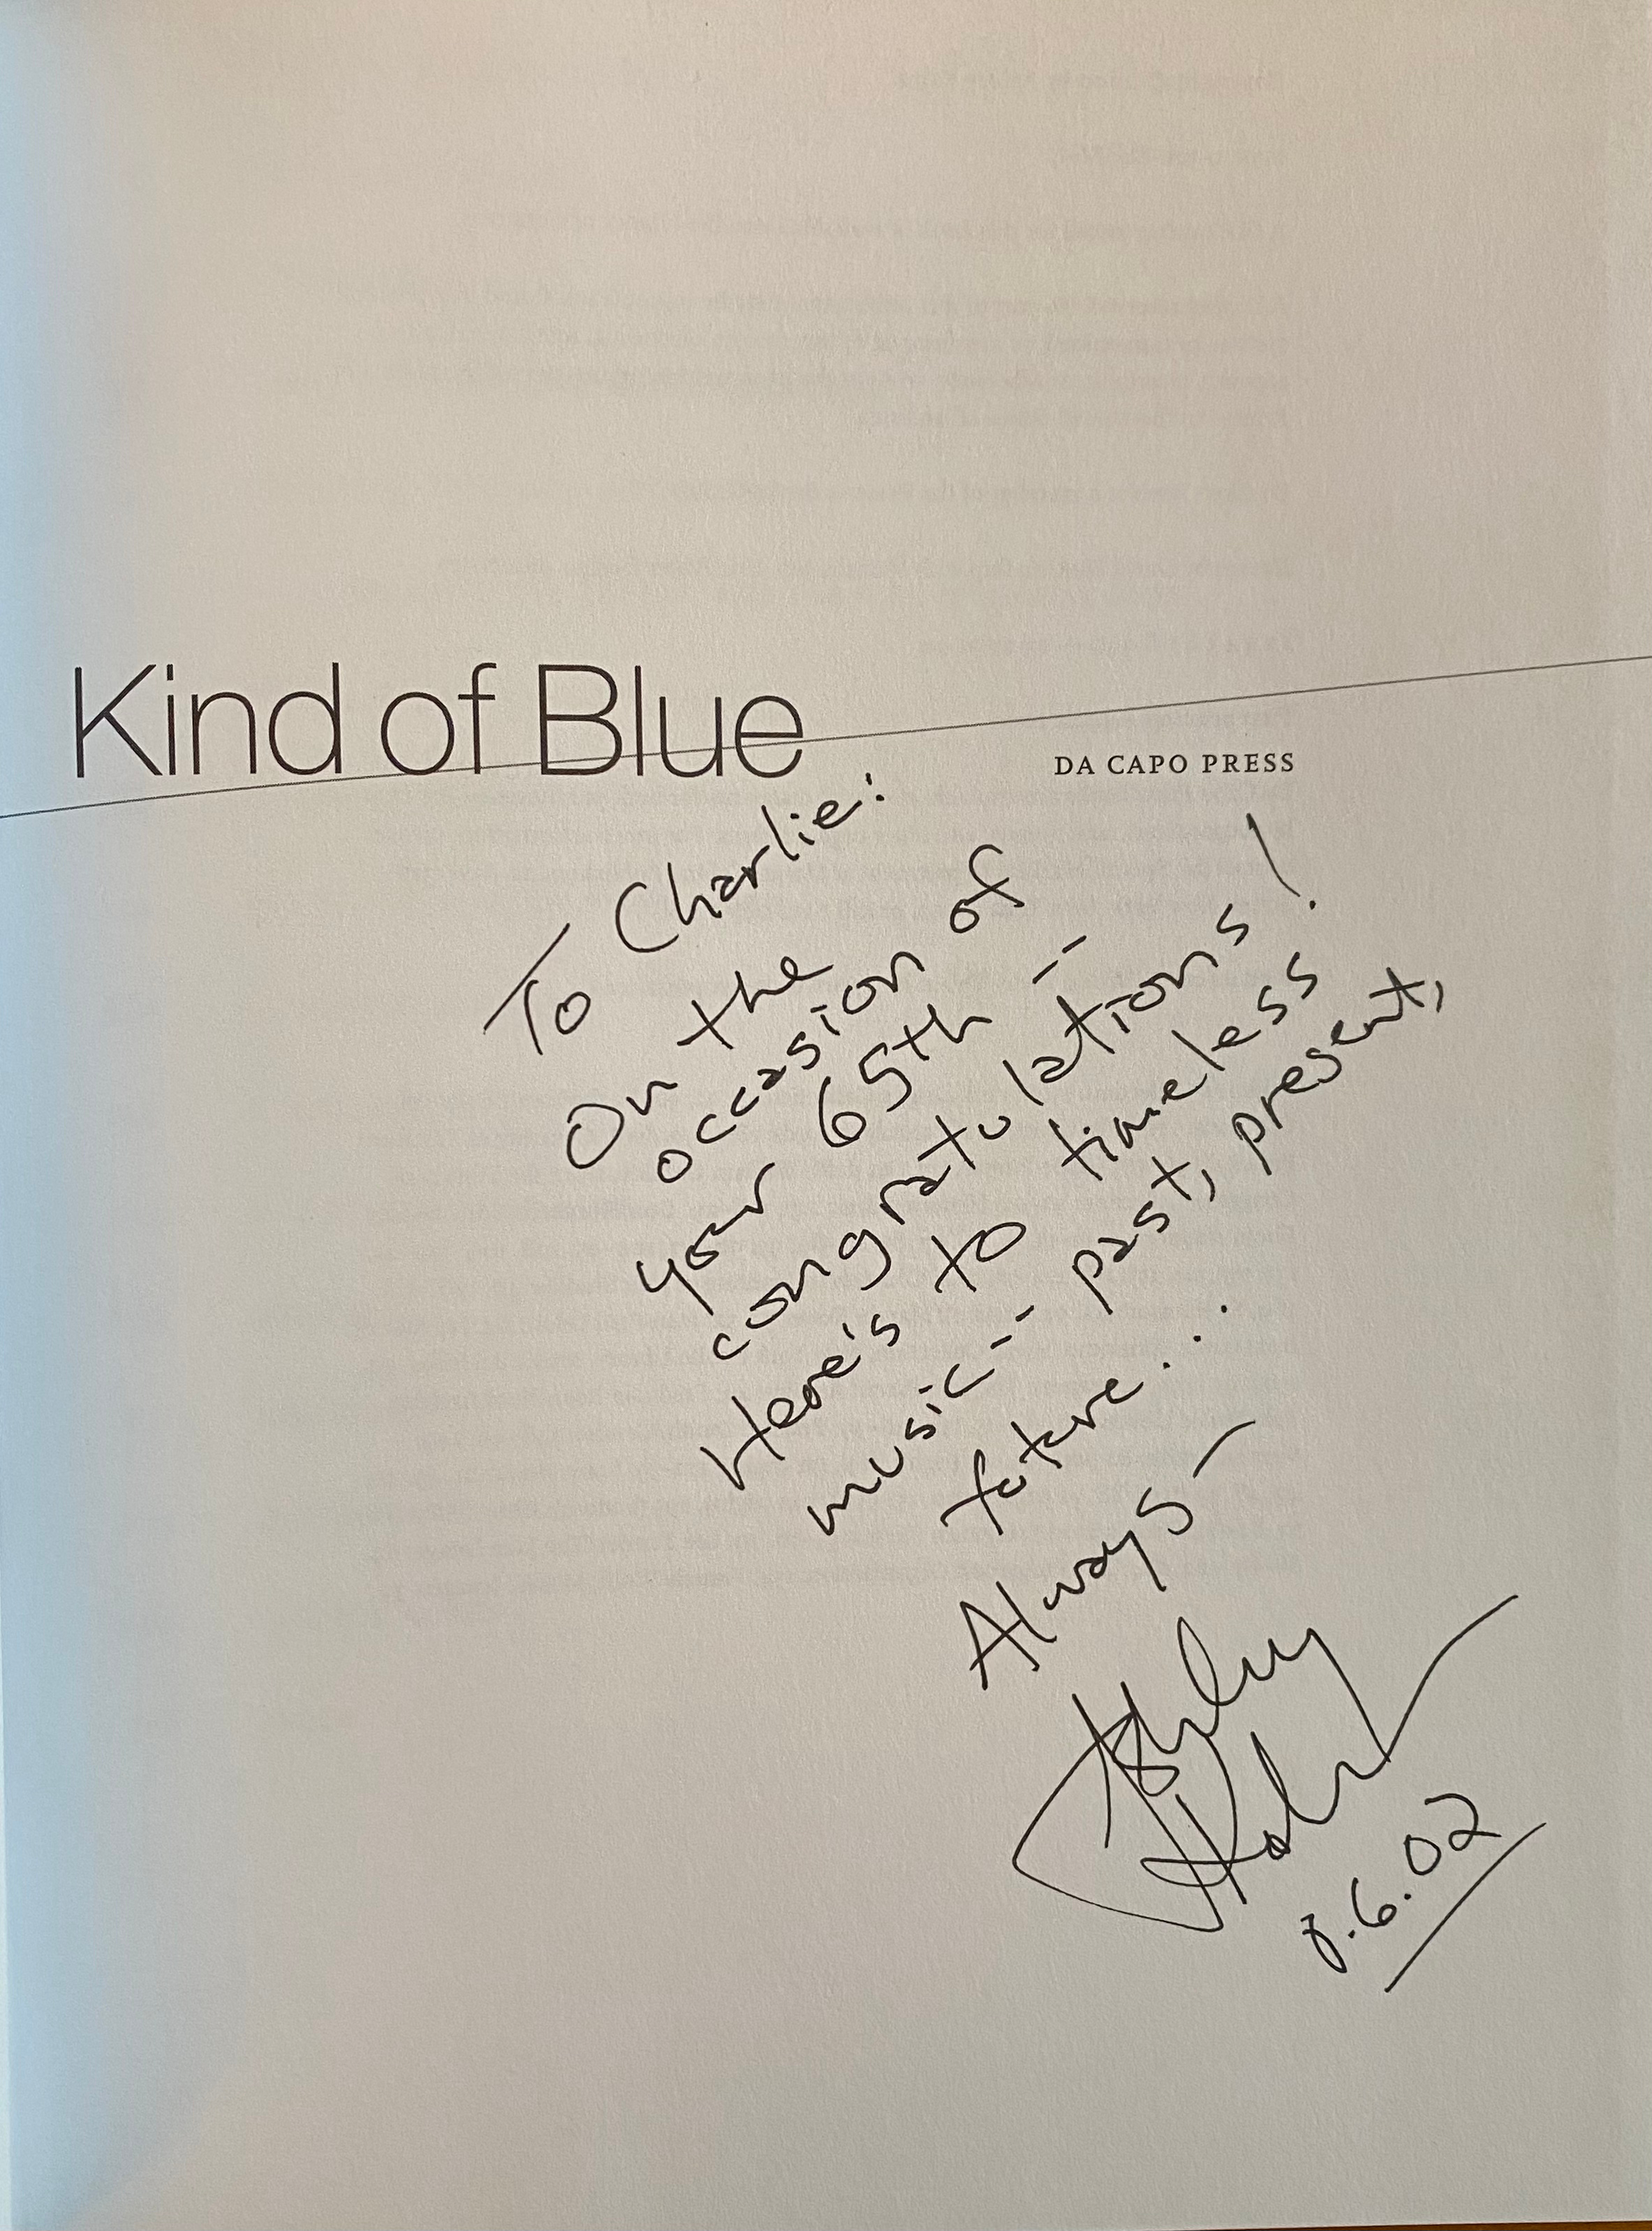 Kind of Blue
DA CAPO PRESS
To Charlie:
On the
occasion of
your 65th --
congratulations!
Here's to timeless
music -- past, present,
future...
Always —
Ashley
Kahn
8.6.02